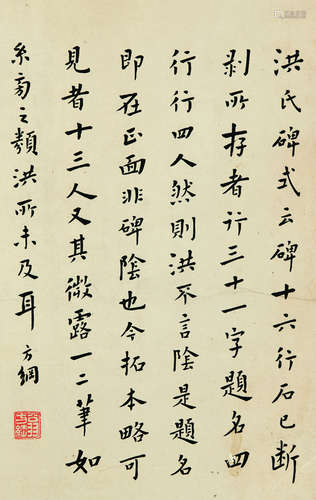 洪氏碑式云碑十六行石已断
剥所存者行三十一字题名四
行行四人然则洪不言陰是题名
即在正面非碑陰也今拓本略可
見者十三人又其微露一二筆如
糸旁之類洪所未及耳 方綱